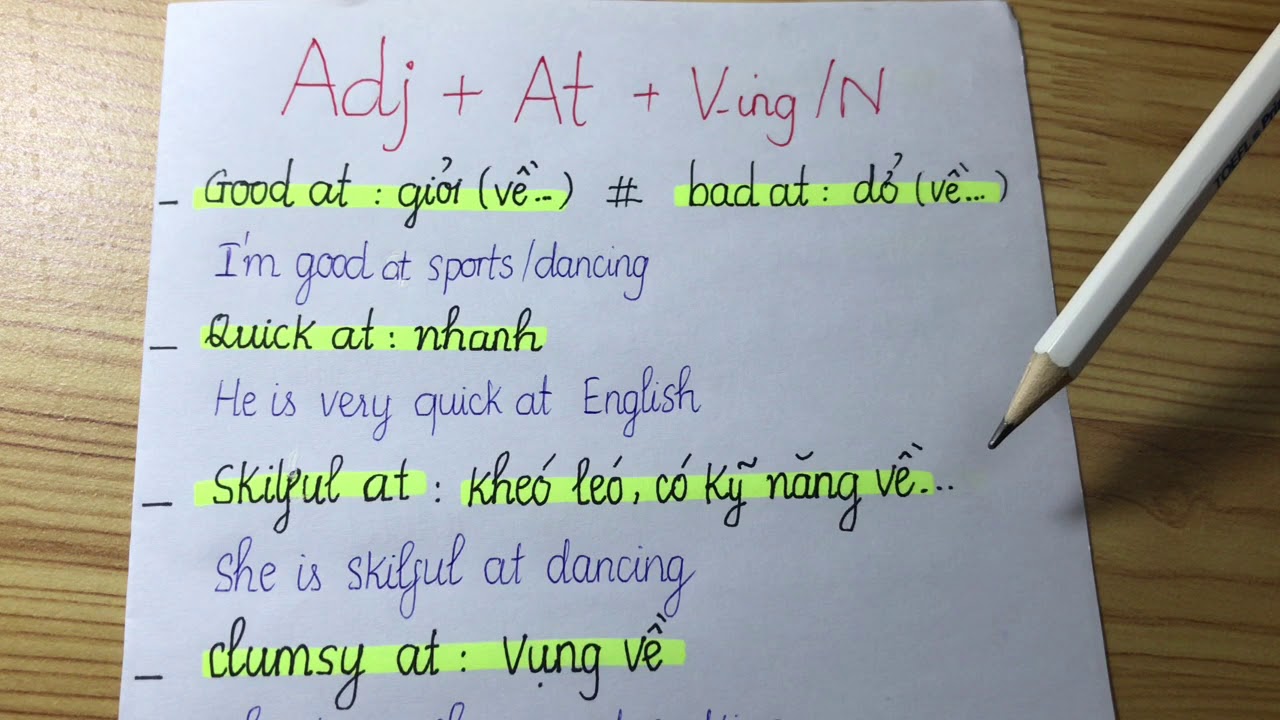 Adj + At + V-ing/N
- Good at : giỏi (về...) # bad at : dở (về...)
I'm good at sports/dancing
- Quick at : nhanh
He is very quick at English
- Skilful at : khéo léo, có kỹ năng về...
She is skilful at dancing
- clumsy at : Vụng về
TOEFL